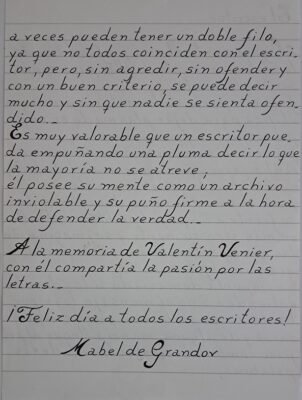 a veces pueden tener un doble filo,
ya que no todos coinciden con el escri-
tor, pero, sin agredir, sin ofender y
con un buen criterio, se puede decir
mucho y sin que nadie se sienta ofen-
dido._
Es muy valorable que un escritor pue-
da empuñando una pluma decir lo que
la mayoría no se atreve;
él posee su mente como un archivo
inviolable y su puño firme a la hora
de defender la verdad._
A la memoria de Valentín Venier,
con él compartía la pasión por las
letras._
¡Feliz día a todos los escritores!
Mabel de Grandov